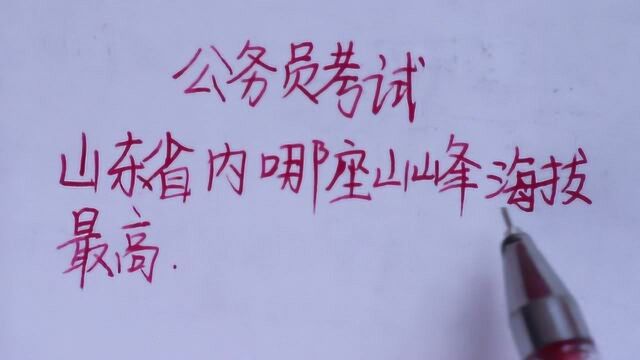 公务员考试
山东省内哪座山峰海拔
最高.